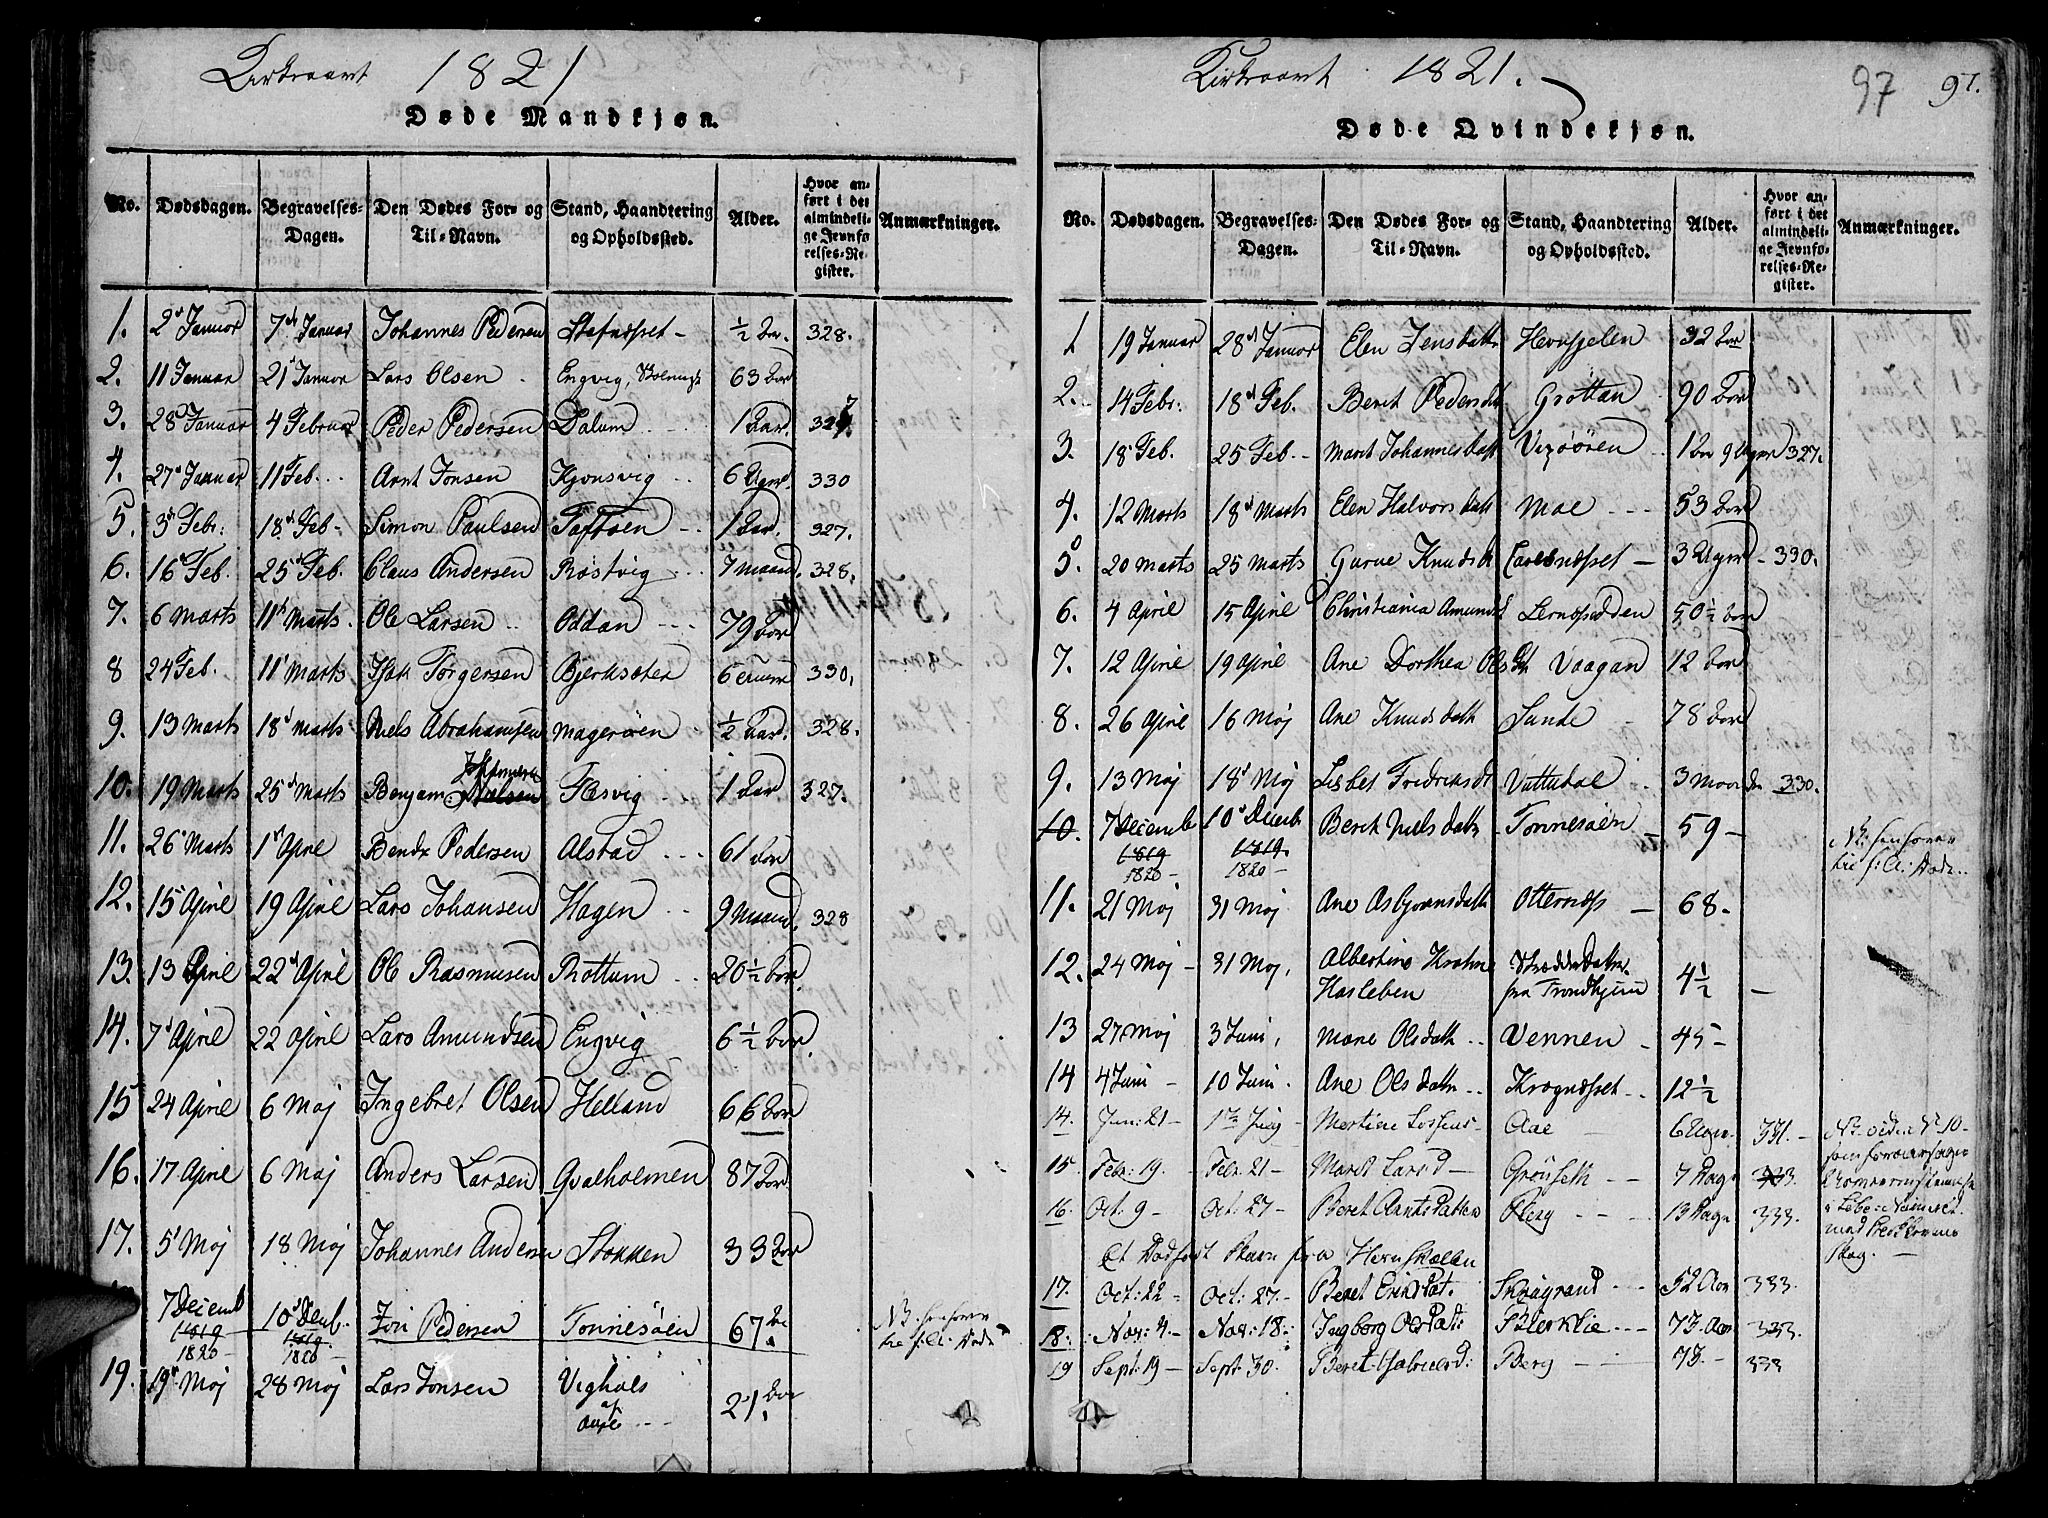 Kirkeaaret 1821
Døde Mandkjøn.
No. Dødsdagen. Begravelses-Dagen. Den Dødes For- og Til-Navn. Stand, Haandtering og Opholdssted. Alder. Hvor anført i det almindelige Jevnførelses-Register. Anmærkninger.
1. 2 Januar 7de Januar Johannes Pedersen Stafnæsset ½ Aar. 328.
2. 11 Januar 21 Januar Lars Olsen Engvig, 63 Aar
3. 28 Januar 4 Februar Peder Pedersen Dalum 1 Aar. 327.
4. 27 Januar 11 Feb. Arnt Jonsen Kjonsvig 6 Uger 330
5. 3 Febr: 18 Feb. Simon Paulsen Taftøen 1 Aar. 327.
6. 16 Feb. 25 Feb. Claus Andersen Rostvig 7 Maand. 328.
7. 6 Marts 11 Marts Ole Larsen Oddan 79 Aar
8 24 Feb. 11 Marts Isak Torgersen Bjerksæter 6 Uger 330.
9. 13 Marts 18 Marts Niels Abrahamsen Magerøen ½ Aar. 328.
10. 19 Marts 25 Marts Benjam Nielsen Fæsvig 1 Aar 327.
11. 26 Marts 1 April Bendx Pedersen Alstad 61 Aar
12. 15 April 19 April Lars Johansen Hagen 9 Maand. 328
13. 13 April 22 April Ole Rasmusen Rottum 20½ Aar.
14. 7 April 22 April Lars Amundsen Engvig 6½ Aar.
15 24 April 6 Maj Ingebret Olsen Helland 66 Aar
16. 17 April 6 Maj Anders Larsen Qvalholmen 87 Aar
17. 5 Maj 18 Maj Johannes Andersen Stokken 33 Aar
7 Decemb 1819 1820 10 Decemb. 1819 1820 Jon Pedersen Tonnesøen 67. Aar NB.
19. 19 Maj 28 Maj Lars Jonsen Vighals af Aure 21. Aar
Kirkeaaret 1821.
97 97.
Døde Qvindekjøn.
No. Dødsdagen. Begravelses-Dagen. Den Dødes For- og Til-Navn. Stand, Haandtering og Opholdssted. Alder. Hvor anført i det almindelige Jevnførelses-Register. Anmærkninger.
1 19 Januar 28 Januar Elen Jensdatt Hevnskjelen 32 Aar
2. 14 Febr: 18 Feb. Beret Pedersdat Grøttan 90 Aar
3. 18 Feb. 25 Feb. Marit Johannesdatt 1 Aar 9 Uger 327.
4. 12 Marts 18 Marts Elen Halvorsdatt Moe 53 Aar
5. 20 Marts 25 Marts Gurue Knudsd Carlsnæsset 3 Uger 330.
6. 4 April 15 April Christiania Amundsd 50½ Aar
7. 12 April 19 April Ane Dorthea Olsdt Vaagan 12 Aar
8. 26 April 16 Maj Ane Knudsdatt Sunde 78 Aar
9. 13 Maj 18 Maj Lisbet Fredriksdt Vuttudal 3 Maander 330.
10. 7 Decemb 1819 1820 10 Decemb 1819. 1820 Beret Nielsdatt Tonnesøen 59 NB.
11. 21 Maj 31 Maj Ane Asbjørnsdatt Otternæss 68.
12. 24 Maj 31 Maj, Albertine Krohne Hasleben fra Trondhjem 4½
13 27 Maj 3 Juni, Marie Olsdatt Vennen 45
14 4 Juni 10 Juni Ane Olsdatt Krognæsset 12½
14. Jun: 21 Martine 6 Uger. 331.
15. Febr: 19. Febr. 21 Maret Larsd Grønseth 7 Dage 333.
16. Oct: 9 Oct: 27 Beret Arntsdatter Berg 13 Dage 333.
Et Dødfødt Barn fra Hevnskelen
17. Oct: 22 Oct: 27. Beret Erichdat. 52 Aar 333.
18. Nov: 4. Nov: 18. Ingborg Olsdat: Bierklie 73 Aar 333.
19 Sept: 19 Sept: 30. Beret Gabrield: Berg 73. 333